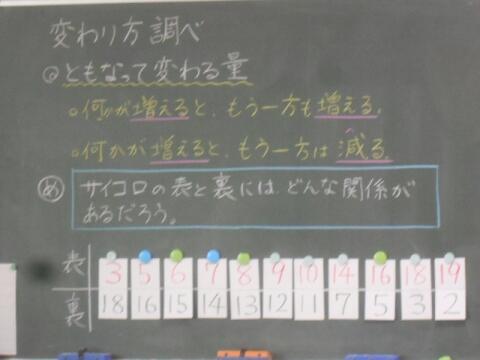 変わり方調べ
◎ともなって変わる量
○何かが増えると、もう一方も増える。
○何かが増えると、もう一方は減る。
め サイコロの表と裏には、どんな関係が
あるだろう。
表 3 5 6 7 8 9 10 14 16 18 19
裏 18 16 15 14 13 12 11 7 5 3 2